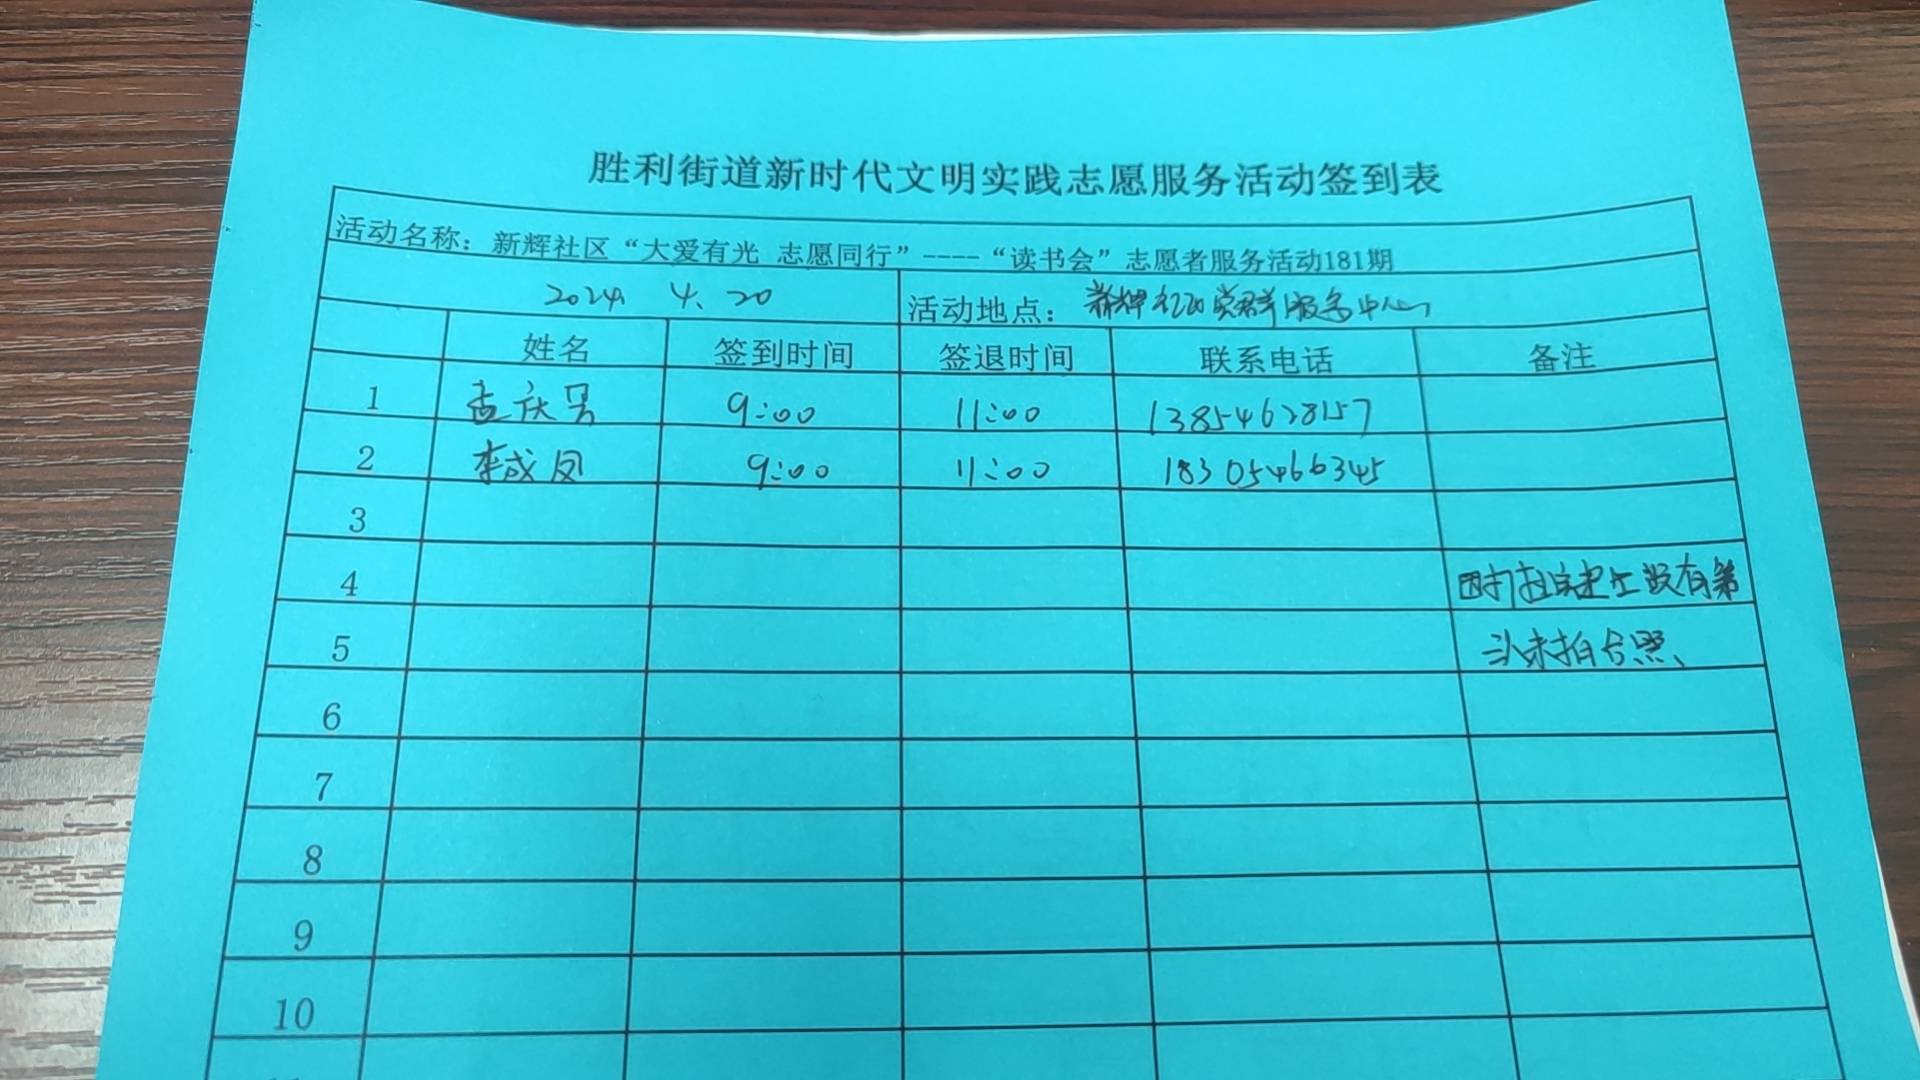 胜利街道新时代文明实践志愿服务活动签到表
活动名称：新辉社区“大爱有光 志愿同行”----“读书会”志愿者服务活动181期
2024、4、20 活动地点：新辉社区党群服务中心
姓名 签到时间 签退时间 联系电话 备注
1 孟庆男 9:00 11:00 13854628157
2 李成凤 9:00 11:00 18305466345
3
4 因打扫完卫生没有集
5 未拍合照、
6
7
8
9
10